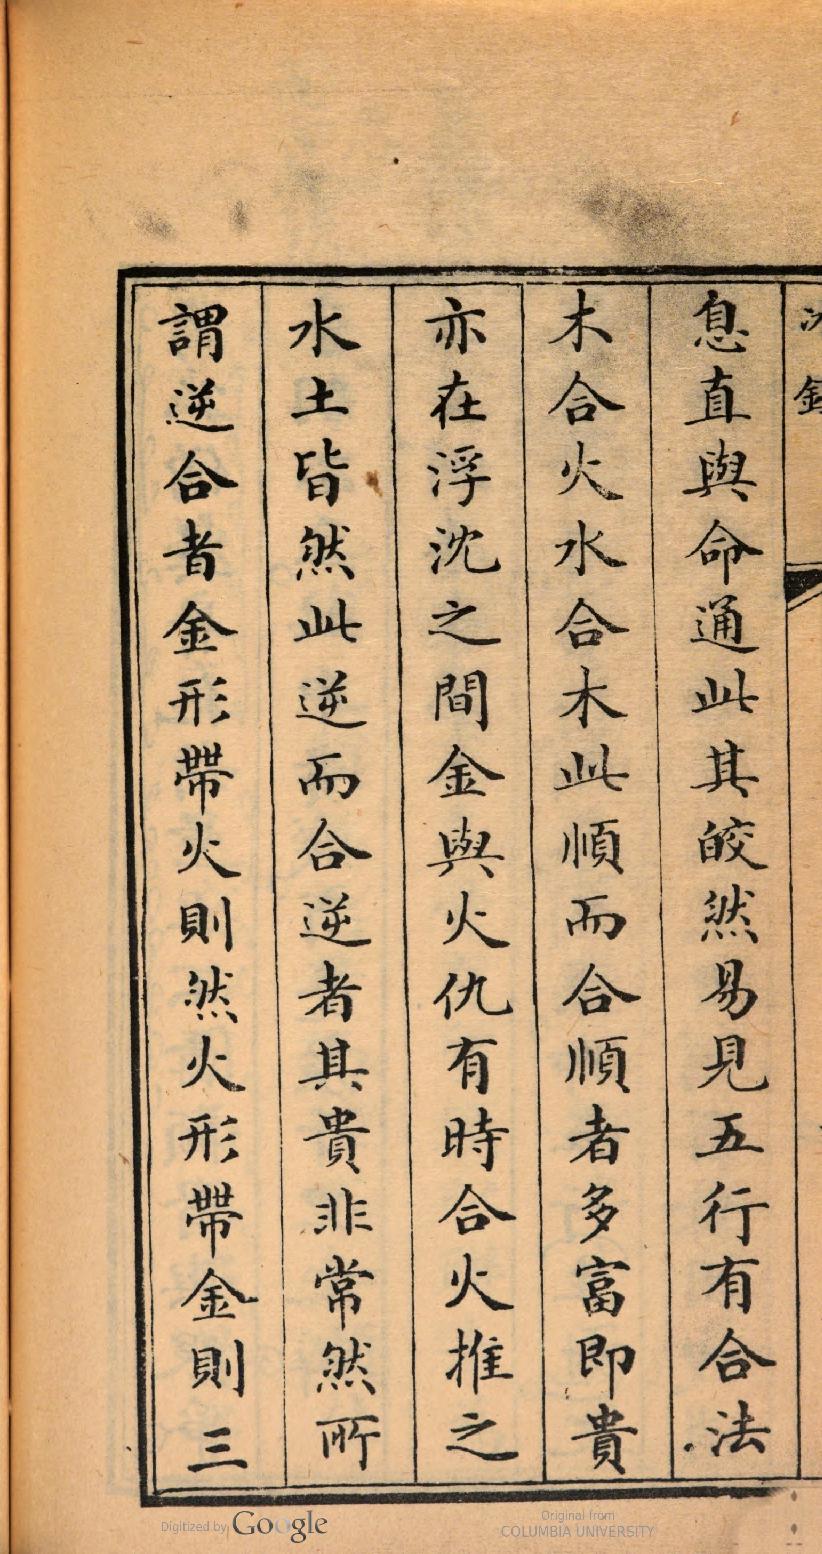 息直與命通此其皎然易見五行有合法
木合火水合木此順而合順者多富即貴
亦在浮沈之間金與火仇有時合火推之
水土皆然此逆而合逆者其貴非常然所
謂逆合者金形帶火則然火形帶金則三
Digitized by Google
Original from
COLUMBIA UNIVERSITY